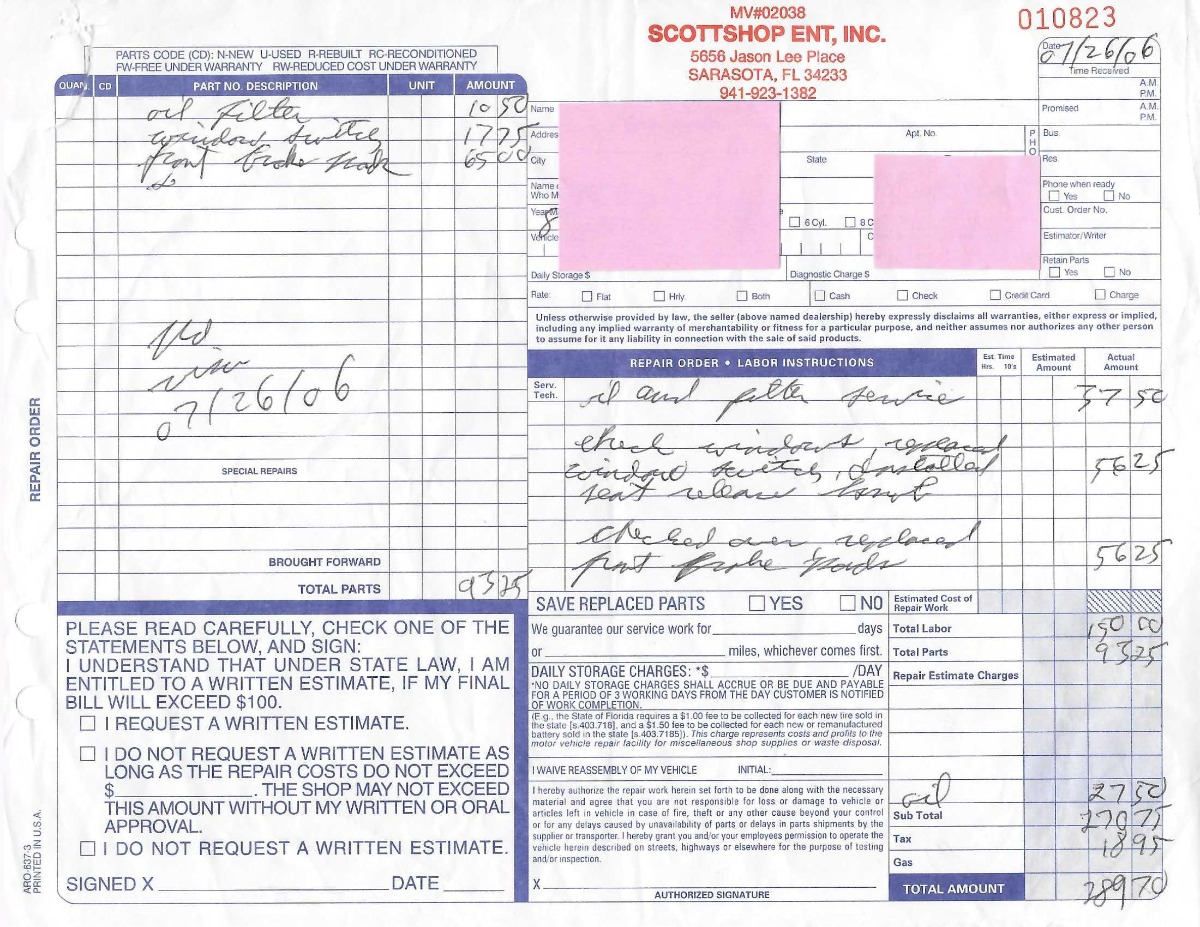 MV#02038
SCOTTSHOP ENT, INC.
5656 Jason Lee Place
SARASOTA, FL 34233
941-923-1382
010823
PARTS CODE (CD): N-NEW U-USED R-REBUILT RC-RECONDITIONED
FW-FREE UNDER WARRANTY RW-REDUCED COST UNDER WARRANTY
QUAN. CD PART NO. DESCRIPTION UNIT AMOUNT
oil filter 10 50
window switch 17 75
front brake pads 65 00
Pd
visa
07/26/06
SPECIAL REPAIRS
BROUGHT FORWARD
TOTAL PARTS 93 25
REPAIR ORDER
ARO-637-3
PRINTED IN U.S.A.
PLEASE READ CAREFULLY, CHECK ONE OF THE
STATEMENTS BELOW, AND SIGN:
I UNDERSTAND THAT UNDER STATE LAW, I AM
ENTITLED TO A WRITTEN ESTIMATE, IF MY FINAL
BILL WILL EXCEED $100.
I REQUEST A WRITTEN ESTIMATE.
I DO NOT REQUEST A WRITTEN ESTIMATE AS
LONG AS THE REPAIR COSTS DO NOT EXCEED
$____________. THE SHOP MAY NOT EXCEED
THIS AMOUNT WITHOUT MY WRITTEN OR ORAL
APPROVAL.
I DO NOT REQUEST A WRITTEN ESTIMATE.
SIGNED X ____________ DATE ______
Date 07/26/06
Time Received
A.M.
P.M.
Name
Promised A.M.
P.M.
Addres Apt. No. PHO Bus.
City State Res
Name
Who M
Phone when ready
Yes No
Year 8
6 Cyl. 8 C
Cust. Order No.
Vehicle
Estimator/Writer
Retain Parts
Yes No
Daily Storage $ Diagnostic Charge $
Rate: Flat Hrly Both Cash Check Credit Card Charge
Unless otherwise provided by law, the seller (above named dealership) hereby expressly disclaims all warranties, either express or implied,
including any implied warranty of merchantability or fitness for a particular purpose, and neither assumes nor authorizes any other person
to assume for it any liability in connection with the sale of said products.
REPAIR ORDER • LABOR INSTRUCTIONS Est. Time Hrs. 10's Estimated Amount Actual Amount
Serv.
Tech.
oil and filter service 37 50
check windows, replaced
window switch, installed 56 25
seat release
checked over replaced
front brake pads 56 25
SAVE REPLACED PARTS YES NO
Estimated Cost of
Repair Work
We guarantee our service work for ____________ days
or ____________ miles, whichever comes first.
Total Labor 150 00
Total Parts 93 25
DAILY STORAGE CHARGES: *$____________/DAY
*NO DAILY STORAGE CHARGES SHALL ACCRUE OR BE DUE AND PAYABLE
FOR A PERIOD OF 3 WORKING DAYS FROM THE DAY CUSTOMER IS NOTIFIED
OF WORK COMPLETION.
Repair Estimate Charges
(E.g., the State of Florida requires a $1.00 fee to be collected for each new tire sold in
the state [s.403.718], and a $1.50 fee to be collected for each new or remanufactured
battery sold in the state [s.403.7185]). This charge represents costs and profits to the
motor vehicle repair facility for miscellaneous shop supplies or waste disposal.
I WAIVE REASSEMBLY OF MY VEHICLE INITIAL:____________
I hereby authorize the repair work herein set forth to be done along with the necessary
material and agree that you are not responsible for loss or damage to vehicle or
articles left in vehicle in case of fire, theft or any other cause beyond your control
or for any delays caused by unavailability of parts or delays in parts shipments by the
supplier or transporter. I hereby grant you and/or your employees permission to operate the
vehicle herein described on streets, highways or elsewhere for the purpose of testing
and/or inspection.
X ____________
AUTHORIZED SIGNATURE
oil 27 50
Sub Total 270 75
Tax 18 95
Gas
TOTAL AMOUNT 289 70